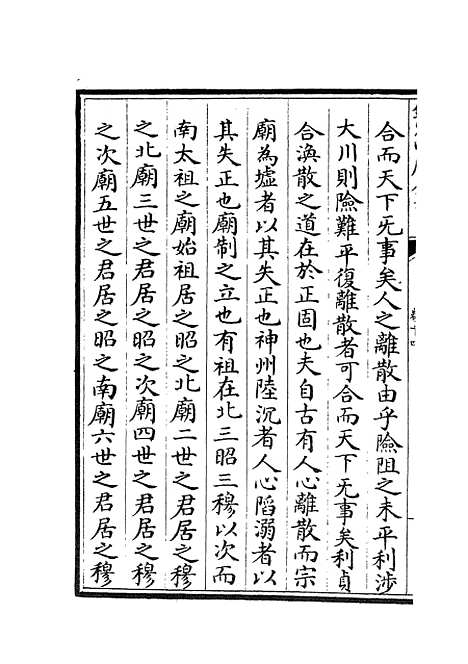 合而天下旡事矣人之離散由乎險阻之未平利涉
大川則險難平復離散者可合而天下旡事矣利貞
合渙散之道在於正固也夫自古有人心離散而宗
廟為墟者以其失正也神州陸沉者人心陷溺者以
其失正也廟制之立也有祖在北三昭三穆以次而
南太祖之廟始祖居之昭之北廟二世之君居之穆
之北廟三世之君居之昭之次廟四世之君居之穆
之次廟五世之君居之昭之南廟六世之君居之穆